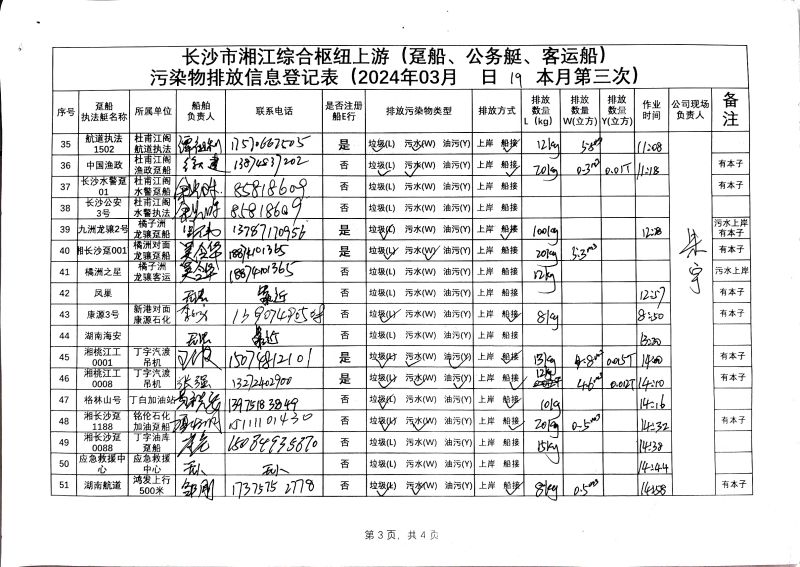 长沙市湘江综合枢纽上游（趸船、公务艇、客运船）
污染物排放信息登记表（2024年03月 19 日 本月第三次）
序号 趸船执法艇名称 所属单位 船舶负责人 联系电话 是否注册船E行 排放污染物类型 排放方式 排放数量L（kg） 排放数量W(立方) 排放数量Y(立方) 作业时间 公司现场负责人 备注
35 航道执法1502 杜甫江阁航道执法 是 垃圾(L) 污水(W) 油污(Y) 上岸 船接 12kg 11:08
36 中国渔政 杜甫江阁渔政趸船 13874837202 否 垃圾(L) 污水(W) 油污(Y) 上岸 船接 20kg 0.3m³ 0.01T 11:18 有本子
37 长沙水警趸01 杜甫江阁水警趸船 85818609 否 垃圾(L) 污水(W) 油污(Y) 上岸 船接 有本子
38 长沙公安3号 杜甫江阁水警执法 85818609 否 垃圾(L) 污水(W) 油污(Y) 上岸 船接
39 九洲龙骧2号 橘子洲龙骧趸船 13787170956 是 垃圾(L) 污水(W) 油污(Y) 上岸 船接 100kg 12:28 污水上岸有本子
40 湘长沙趸001 橘洲对面龙骧趸船 18874101365 是 垃圾(L) 污水(W) 油污(Y) 上岸 船接 20kg 3.3m³ 有本子
41 橘洲之星 橘子洲龙骧客运 18874101365 否 垃圾(L) 污水(W) 油污(Y) 上岸 船接 12kg 污水上岸
42 凤巢 否 垃圾(L) 污水(W) 油污(Y) 上岸 船接 12:57
43 康源3号 新港对面康源石化 否 垃圾(L) 污水(W) 油污(Y) 上岸 船接 8kg 有本子
44 湖南海安 否 垃圾(L) 污水(W) 油污(Y) 上岸 船接
45 湘桃江工0001 丁字汽渡吊机 15079812101 是 垃圾(L) 污水(W) 油污(Y) 上岸 船接 13kg 4.8m³ 0.015T 14:00 有本子
46 湘桃江工0008 丁字汽渡吊机 张强 13272402900 是 垃圾(L) 污水(W) 油污(Y) 上岸 船接 12kg 4.6m³ 0.012T 14:10 有本子
47 格林山号 丁白加油站 13975183849 否 垃圾(L) 污水(W) 油污(Y) 上岸 船接 10kg 14:16
48 湘长沙趸1188 铭伦石化加油趸船 15111101430 否 垃圾(L) 污水(W) 油污(Y) 上岸 船接 20kg 0.5m³ 14:32 有本子
49 湘长沙趸0088 丁字油库趸船 15084935870 否 垃圾(L) 污水(W) 油污(Y) 上岸 船接 15kg 14:38
50 应急救援中心 应急救援中心 否 垃圾(L) 污水(W) 油污(Y) 上岸 船接 14:44
51 湖南航道 鸿发上行500米 邹刚 17375752778 否 垃圾(L) 污水(W) 油污(Y) 上岸 船接 8kg 0.5m³ 14:58 有本子
朱宇
第 3 页，共 4 页